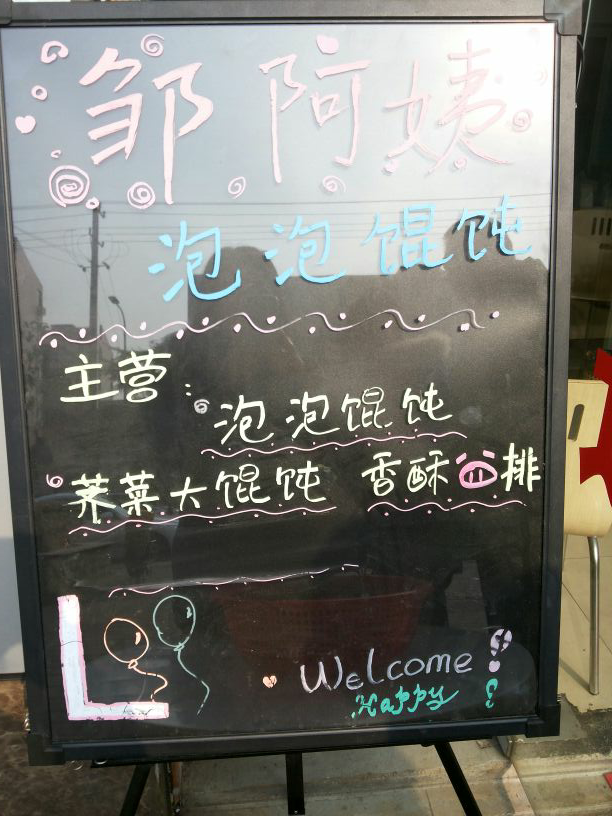 邹阿姨
泡泡馄饨
主营:
泡泡馄饨
荠菜大馄饨 香酥排
Welcome!
Happy